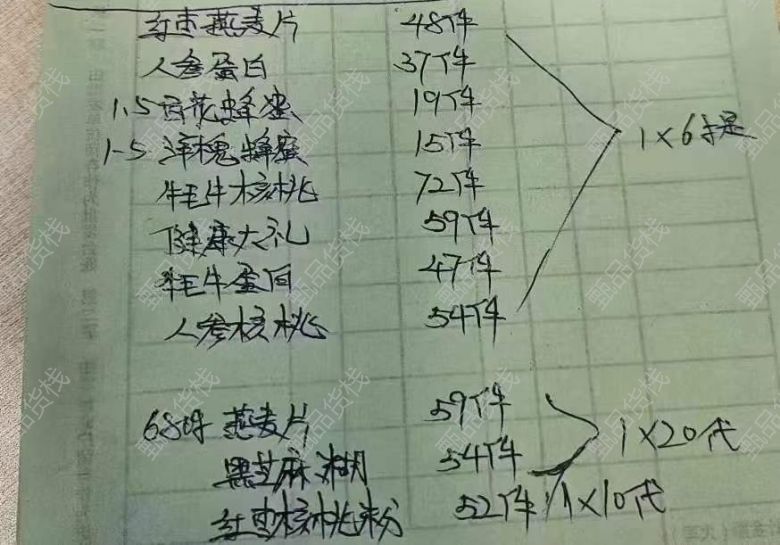 红枣燕麦片 48件
人参蛋白 37件
1.5百花蜂蜜 19件
1-5洋槐蜂蜜 15件
牦牛核桃 72件
健康大礼 59件
牦牛蛋白 47件
人参核桃 54件
1×6提
68号燕麦片 59件
黑芝麻糊 54件
1×20代
红枣核桃粉 52件 1×10代
甄品货栈